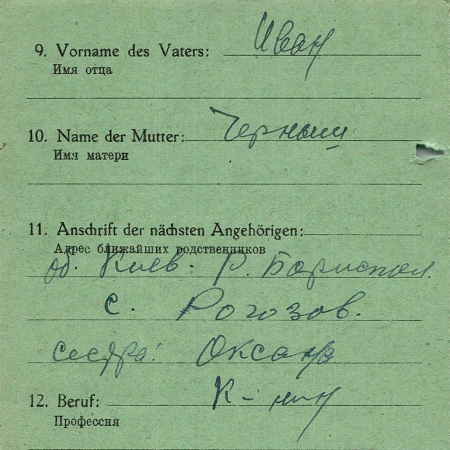 9. Vorname des Vaters: Иван
Имя отца
10. Name der Mutter: Черныш
Имя матери
11. Anschrift der nächsten Angehörigen:
Адрес ближайших родственников
об. Киев. р. Бориспол.
с. Рогозов.
сестра: Оксана
12. Beruf: к-нин
Профессия